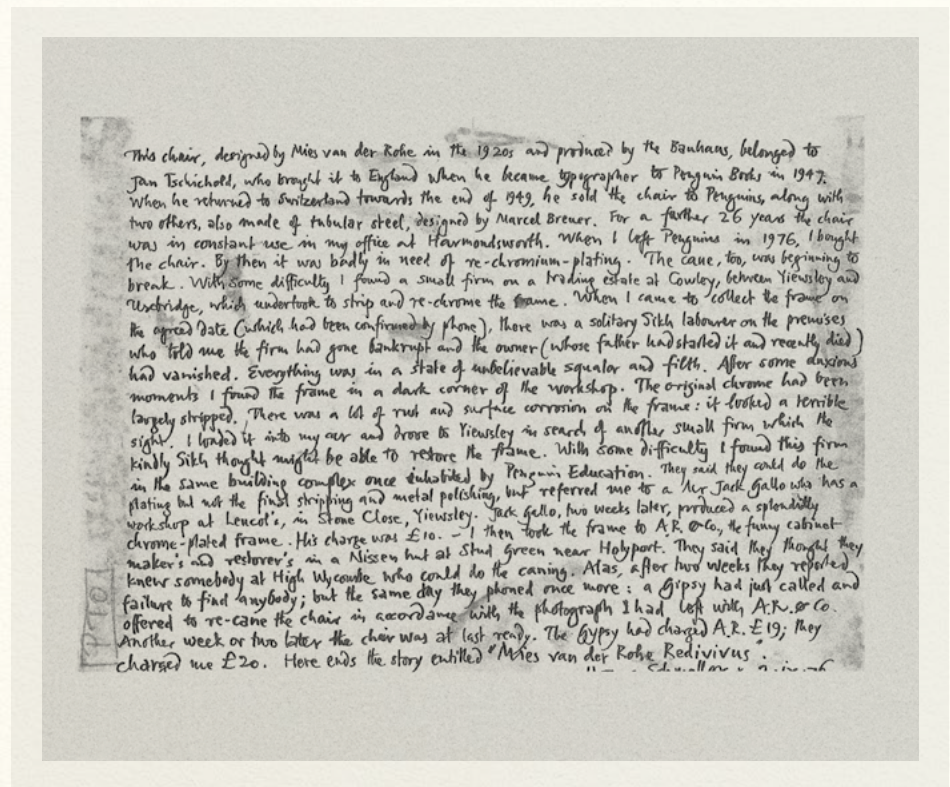 This chair, designed by Mies van der Rohe in the 1920s and produced by the Bauhaus, belonged to
Jan Tschichold, who brought it to England when he became typographer to Penguin Books in 1947.
When he returned to Switzerland towards the end of 1949, he sold the chair to Penguins, along with
two others, also made of tubular steel, designed by Marcel Breuer. For a further 26 years the chair
was in constant use in my office at Harmondsworth. When I left Penguins in 1976, I bought
the chair. By then it was badly in need of re-chromium-plating. The cane, too, was beginning to
break. With some difficulty I found a small firm on a trading estate at Cowley, between Yiewsley and
Uxbridge, which undertook to strip and re-chrome the frame. When I came to collect the frame on
the agreed date (which had been confirmed by phone), there was a solitary Sikh labourer on the premises
who told me the firm had gone bankrupt and the owner (whose father had started it and recently died)
had vanished. Everything was in a state of unbelievable squalor and filth. After some anxious
moments I found the frame in a dark corner of the workshop. The original chrome had been
largely stripped. There was a lot of rust and surface corrosion on the frame: it looked a terrible
sight. I loaded it into my car and drove to Yiewsley in search of another small firm which the
kindly Sikh thought might be able to restore the frame. With some difficulty I found this firm
in the same building complex once inhabited by Penguin Education. They said they could do the
plating but not the final stripping and metal polishing, but referred me to a Mr Jack Gallo who has a
workshop at Lencol's, in Stone Close, Yiewsley. Jack Gallo, two weeks later, produced a splendidly
chrome-plated frame. His charge was £10. – I then took the frame to A.R. & Co., the funny cabinet-
maker's and restorer's in a Nissen hut at Stud Green near Holyport. They said they thought they
knew somebody at High Wycombe who could do the caning. Alas, after two weeks they reported
failure to find anybody; but the same day they phoned once more: a Gipsy had just called and
offered to re-cane the chair in accordance with the photograph I had left with A.R. & Co.
Another week or two later the chair was at last ready. The Gypsy had charged A.R. £19; they
charged me £20. Here ends the story entitled "Mies van der Rohe Redivivus".
PTO